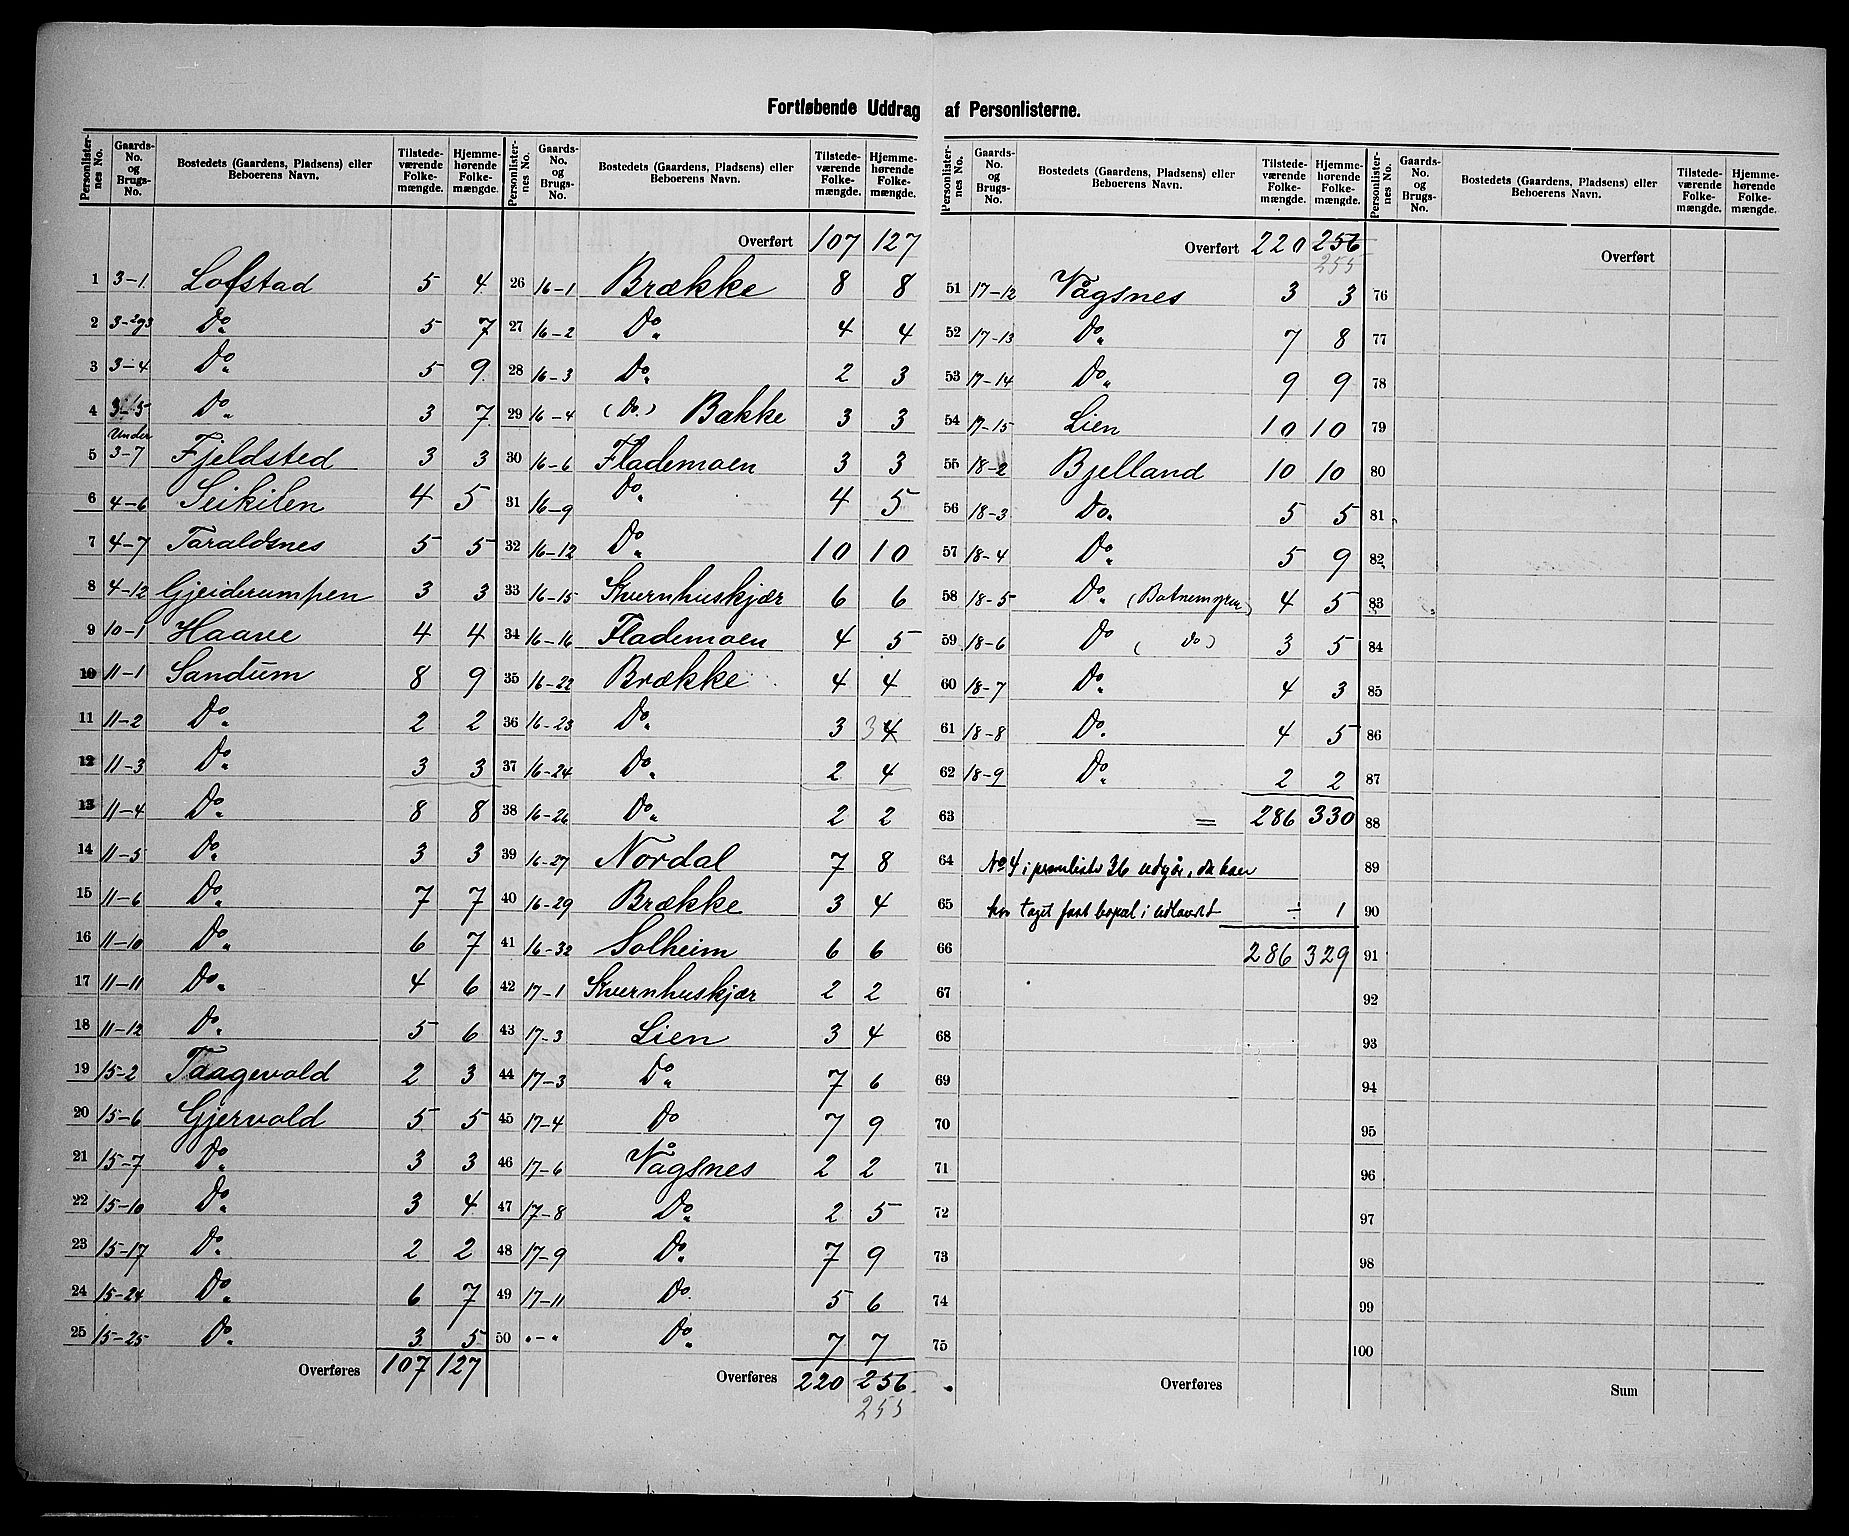 Fortløbende Uddrag af Personlisterne.
Personlister-nes No. | Gaards-No. og Brugs-No. | Bostedets (Gaardens, Pladsens) eller Beboerens Navn. | Tilstede-værende Folke-mængde. | Hjemme-hørende Folke-mængde.
1 3-1 Lofstad 5 4
2 3-2g3 Do 5 7
3 3-4 Do 5 9
4 3-15 Do 3 7
5 Under 3-7 Fjeldsted 3 3
6 4-6 Seikilen 4 5
7 4-7 Taraldsnes 5 5
8 4-12 Gjeiderumpen 3 3
9 10-1 Haave 4 4
10 11-1 Sandum 8 9
11 11-2 Do 2 2
12 11-3 Do 3 3
13 11-4 Do 8 8
14 11-5 Do 3 3
15 11-6 Do 7 7
16 11-10 Do 6 7
17 11-11 Do 4 6
18 11-12 Do 5 6
19 15-2 Taagevold 2 3
20 15-6 Gjervold 5 5
21 15-7 Do 3 3
22 15-10 Do 3 4
23 15-17 Do 2 2
24 15-24 Do 6 7
25 15-25 Do 3 5
Overføres 107 127
Personlister-nes No. | Gaards-No. og Brugs-No. | Bostedets (Gaardens, Pladsens) eller Beboerens Navn. | Tilstede-værende Folke-mængde. | Hjemme-hørende Folke-mængde.
Overført 107 127
26 16-1 Brække 8 8
27 16-2 Do 4 4
28 16-3 Do 2 3
29 16-4 (Do.) Bakke 3 3
30 16-6 Flademoen 3 3
31 16-9 Do 4 5
32 16-12 Do 10 10
33 16-15 Kvernhuskjær 6 6
34 16-16 Flademoen 4 5
35 16-22 Brække 4 4
36 16-23 Do 3 3 4
37 16-24 Do 2 4
38 16-26 Do 2 2
39 16-27 Nordal 7 8
40 16-29 Brække 3 4
41 16-32 Solheim 6 6
42 17-1 Kvernhuskjær 2 2
43 17-3 Lien 3 4
44 17-3 Do 7 6
45 17-4 Do 7 9
46 17-6 Vågsnes 2 2
47 17-8 Do 2 5
48 17-9 Do 7 9
49 17-11 Do 5 6
50 "-" Do 7 7
Overføres 220 256
255
Personlister-nes No. | Gaards-No. og Brugs-No. | Bostedets (Gaardens, Pladsens) eller Beboerens Navn. | Tilstede-værende Folke-mængde. | Hjemme-hørende Folke-mængde.
Overført 220 256
255
51 17-12 Vågsnes 3 3
52 17-13 Do 7 8
53 17-14 Do 9 9
54 17-15 Lien 10 10
55 18-2 Bjelland 10 10
56 18-3 Do. 5 5
57 18-4 Do 5 9
58 18-5 Do (Botnemyren) 4 5
59 18-6 Do ( do) 3 5
60 18-7 Do 4 3
61 18-8 Do. 4 5
62 18-9 Do 2 2
63 = 286 330
64 No 4 i personliste 36 udgår, da han
65 har taget fast bopæl i udlandet ÷ 1
66 286 329
67
68
69
70
71
72
73
74
75
Overføres
Personlister-nes No. | Gaards-No. og Brugs-No. | Bostedets (Gaardens, Pladsens) eller Beboerens Navn. | Tilstede-værende Folke-mængde. | Hjemme-hørende Folke-mængde.
Overført
76
77
78
79
80
81
82
83
84
85
86
87
88
89
90
91
92
93
94
95
96
97
98
99
100
Sum